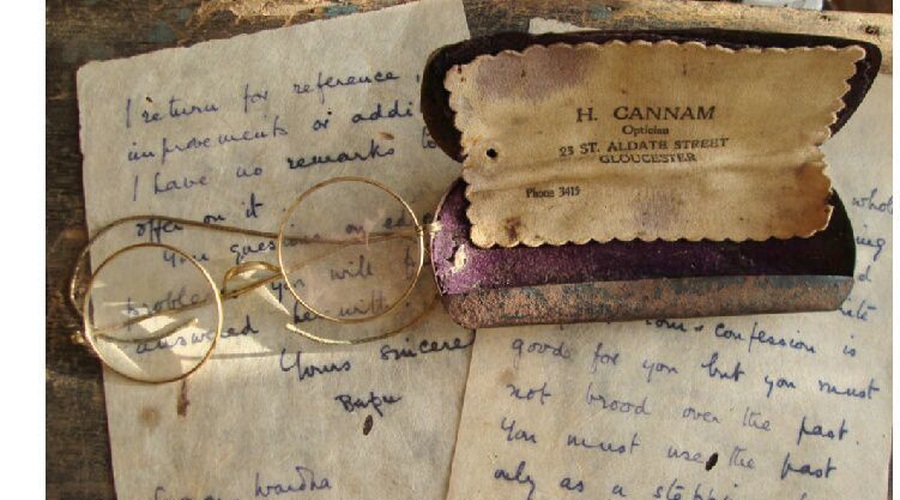 I return for reference,
improvements or addi
I have no remarks to
offer on it
Your question on
proble you will
answered herewith.
Yours sincere
Bapu
Wardha
H. CANNAM
Optician
23 ST. ALDATE STREET
GLOUCESTER
Phone 3415
whol
ing
d
ite
confession is
goods for you but you must
not brood over the past.
You must use the past
only as a steppin